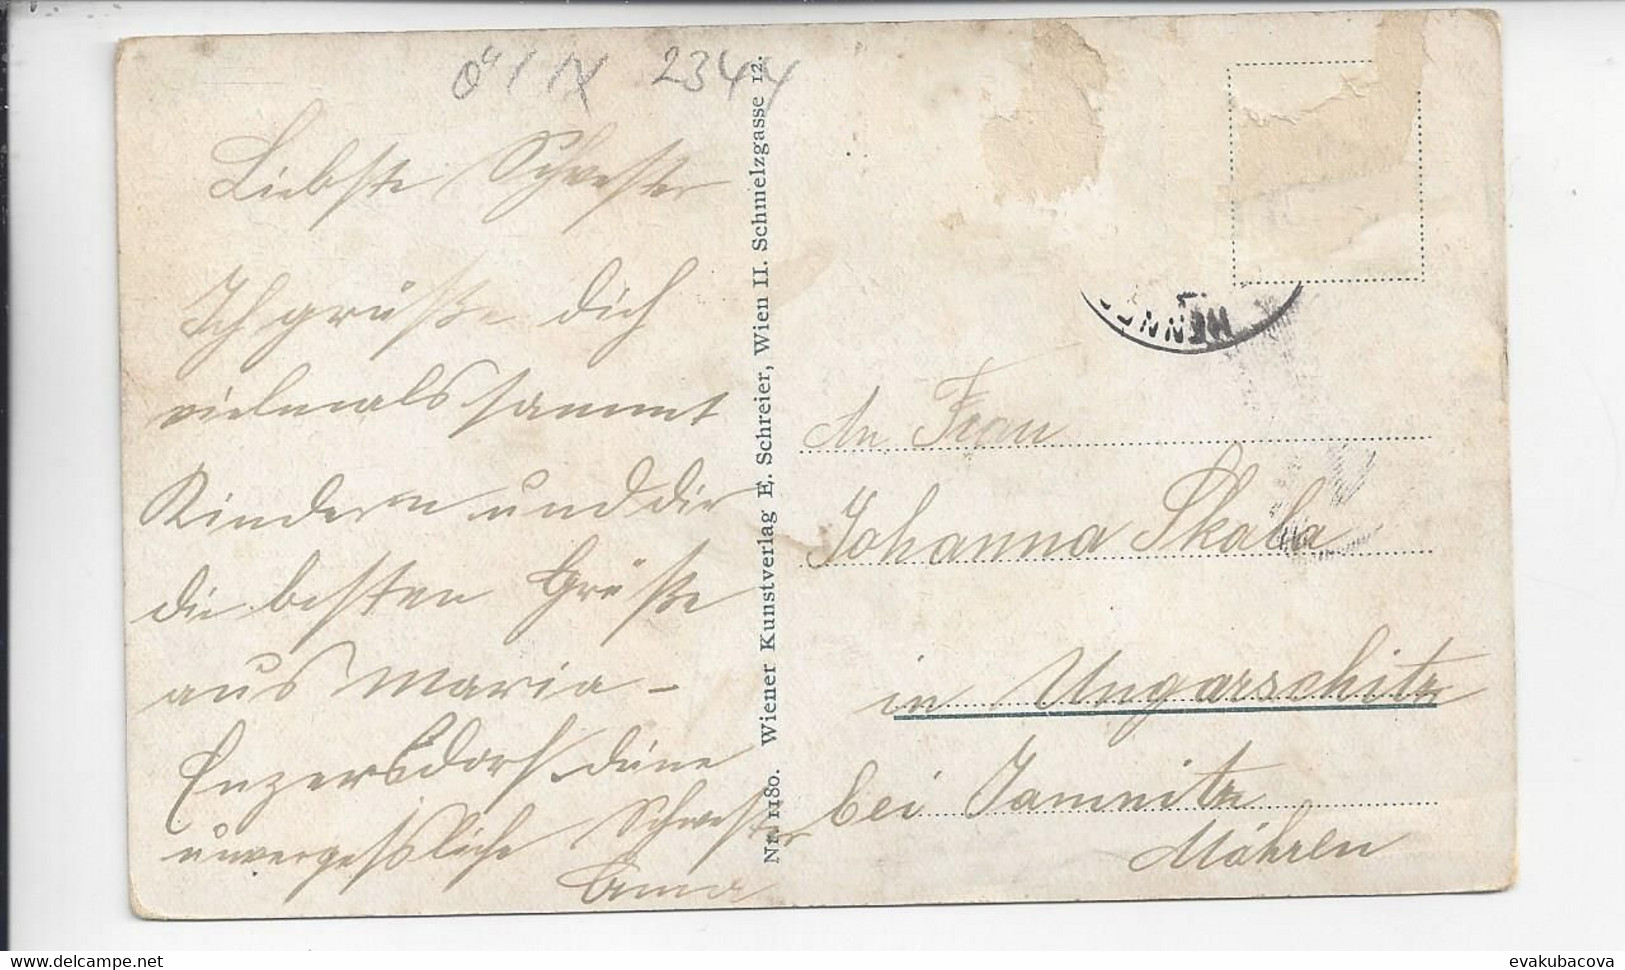 2344
Liebste Schwester
Ich grüße dich
vielmals sammt
Kindern und dir
die besten Grüße
aus Maria-
Enzersdorf deine
unvergeßliche Schwester
Nr. 1180. Wiener Kunstverlag E. Schreier, Wien II. Schmelzgasse 12.
An Frau
Johanna Skala
in Ungarschitz
bei Jamnitz
Mähren
evakubacova
delcampe.net